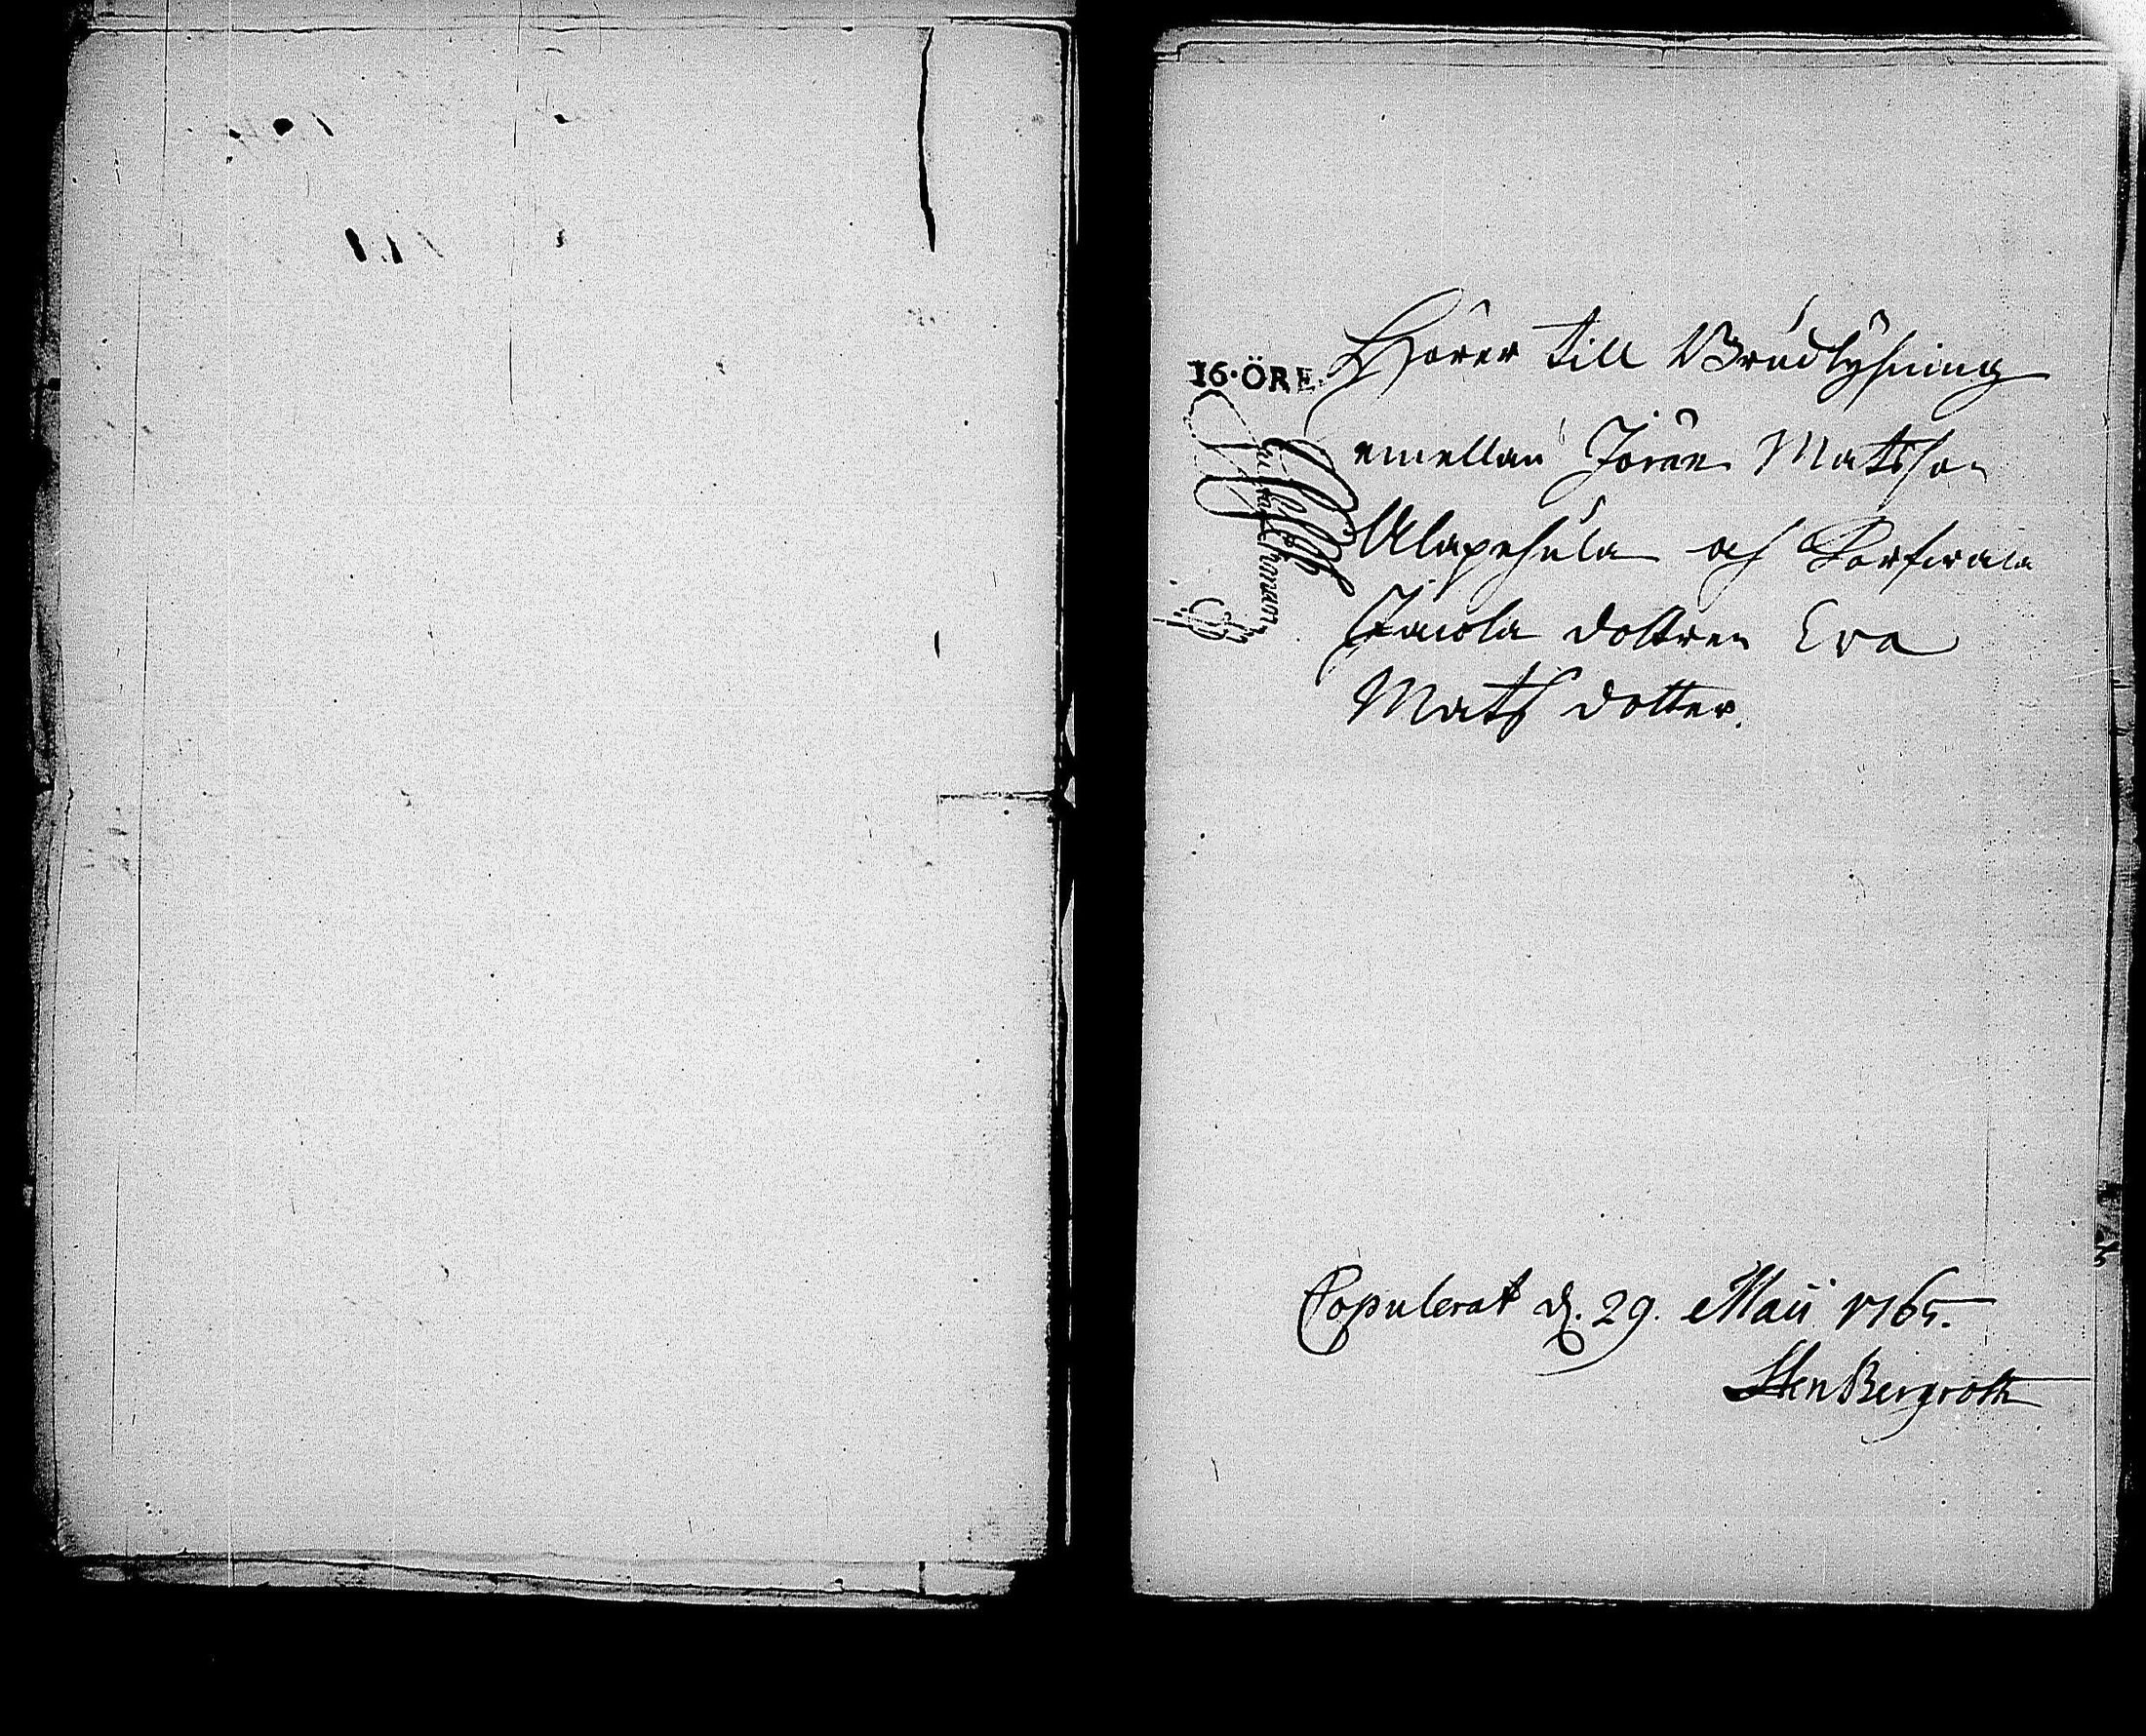 16·ÖRE.
Hörer till Brudlysning
emellan Jöran Matsson
Alapehula och
Jacola dottren Eva
Mats dotter.
Copulerat d. 29. Maii 1765.
Sten Bergroth